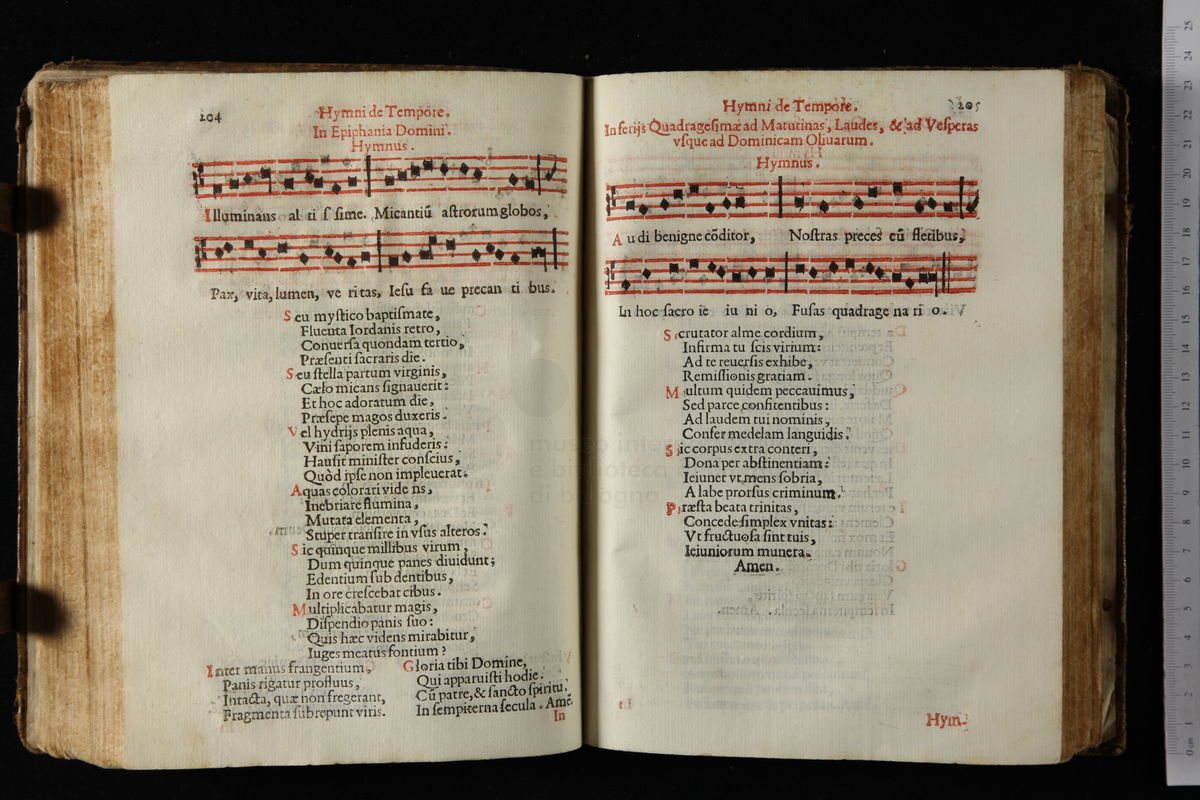 204
Hymni de Tempore.
In Epiphania Domini.
Hymnus.
Illuminans al ti ſ ſime. Micantiũ aſtrorum globos,
Pax, vita, lumen, ve ri tas, Ieſu fa ue precan ti bus.
Seu myſtico baptiſmate,
Fluenta Iordanis retro,
Conuerſa quondam tertio,
Præſenti ſacraris die.
Seu ſtella partum virginis,
Cælo micans ſignauerit:
Et hoc adoratum die,
Præſepe magos duxeris.
Vel hydrijs plenis aqua,
Vini ſaporem infuderis:
Hauſit miniſter conſcius,
Quòd ipſe non impleuerat.
Aquas colorari vide ns,
Inebriare flumina,
Mutata elementa,
Stuper tranſire in vſus alteros.
Sic quinque millibus virum,
Dum quinque panes diuidunt;
Edentium ſub dentibus,
In ore creſcebat cibus.
Multiplicabatur magis,
Diſpendio panis ſuo:
Quis hæc videns mirabitur,
Iuges meatus fontium?
Inter manus frangentium,
Panis rigatur profluus,
Intacta, quæ non fregerant,
Fragmenta ſubrepunt viris.
Gloria tibi Domine,
Qui apparuiſti hodie:
Cũ patre, & ſancto ſpiritu.
In ſempiterna ſecula. Amẽ.
In
205
Hymni de Tempore.
In ferijs Quadrageſimæ ad Matutinas, Laudes, & ad Veſperas
vſque ad Dominicam Oliuarum.
Hymnus.
Au di benigne cõditor, Noſtras preces cũ fletibus,
In hoc ſacro ie iu ni o, Fuſas quadrage na ri o.
Scrutator alme cordium,
Infirma tu ſcis virium:
Ad te reuerſis exhibe,
Remiſſionis gratiam.
Multum quidem peccauimus,
Sed parce confitentibus:
Ad laudem tui nominis,
Confer medelam languidis.
Sic corpus extra conteri,
Dona per abſtinentiam:
Ieiunet vt mens ſobria,
A labe prorſus criminum.
Præſta beata trinitas,
Concede ſimplex vnitas:
Vt fructuoſa ſint tuis,
Ieiuniorum munera.
Amen.
Hym-